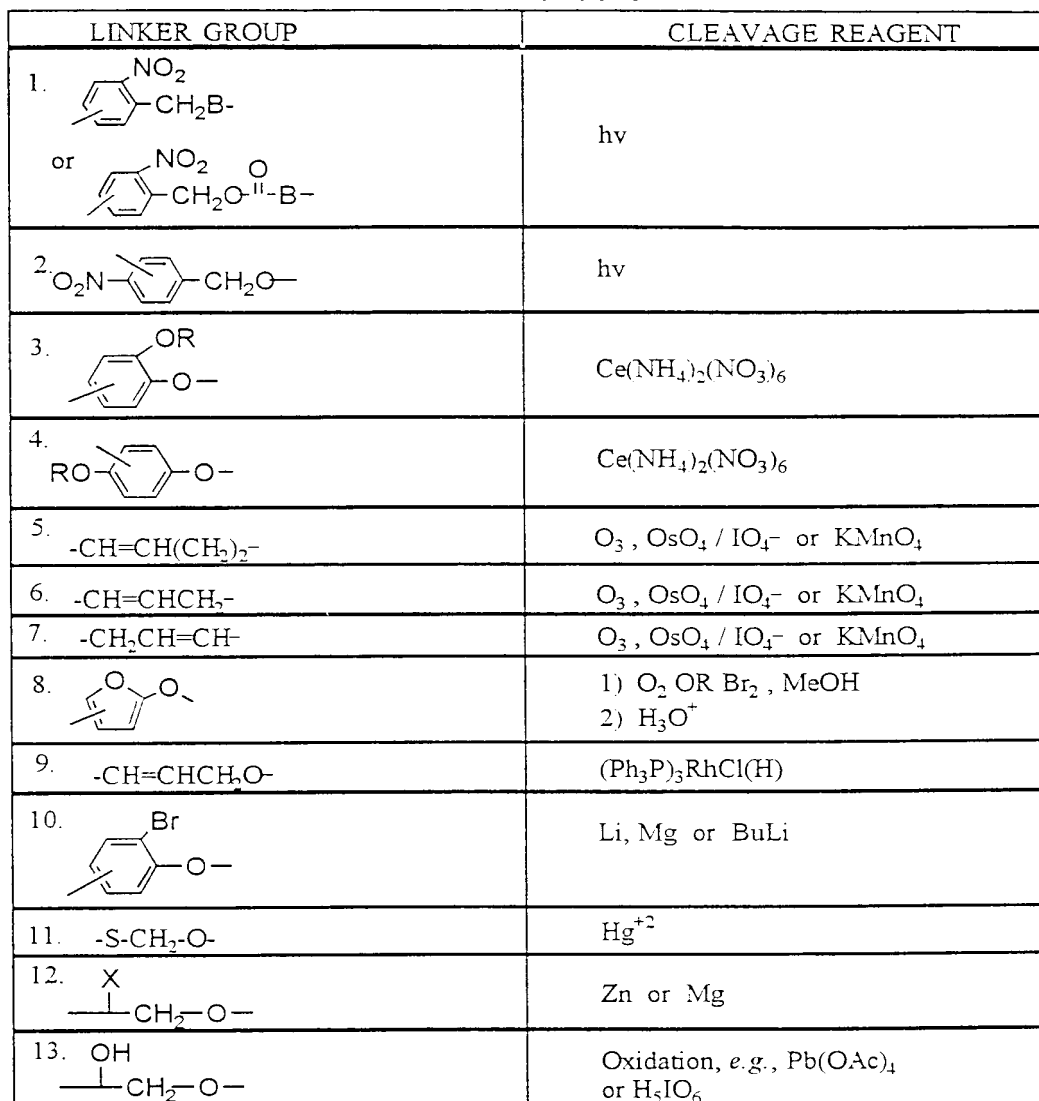 LINKER GROUP CLEAVAGE REAGENT
1. NO₂
CH₂B-
hν
or NO₂ O
CH₂O-"-B-
2. O₂N CH₂O— hν
3. OR
O— Ce(NH₄)₂(NO₃)₆
4. RO O— Ce(NH₄)₂(NO₃)₆
5. -CH=CH(CH₂)₂- O₃ , OsO₄ / IO₄– or KMnO₄
6. -CH=CHCH₂- O₃ , OsO₄ / IO₄– or KMnO₄
7. -CH₂CH=CH- O₃ , OsO₄ / IO₄– or KMnO₄
8. O O 1) O₂ OR Br₂ , MeOH
2) H₃O⁺
9. -CH=CHCH₂O- (Ph₃P)₃RhCl(H)
10. Br
O— Li, Mg or BuLi
11. -S-CH₂-O- Hg⁺²
12. X
CH₂—O— Zn or Mg
13. OH Oxidation, e.g., Pb(OAc)₄
CH₂—O— or H₅IO₆